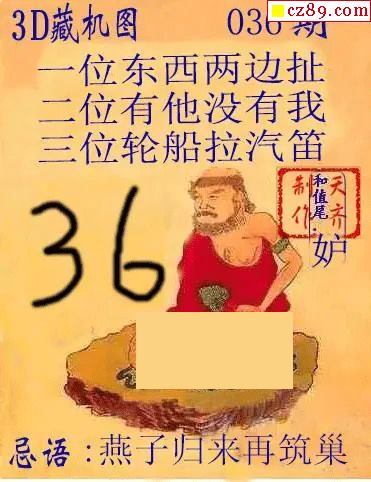 cz89.com
3D藏机图 036期
一位东西两边扯
二位有他没有我
三位轮船拉汽笛
天齐
制作
和值尾:
妒
36
忌语:燕子归来再筑巢